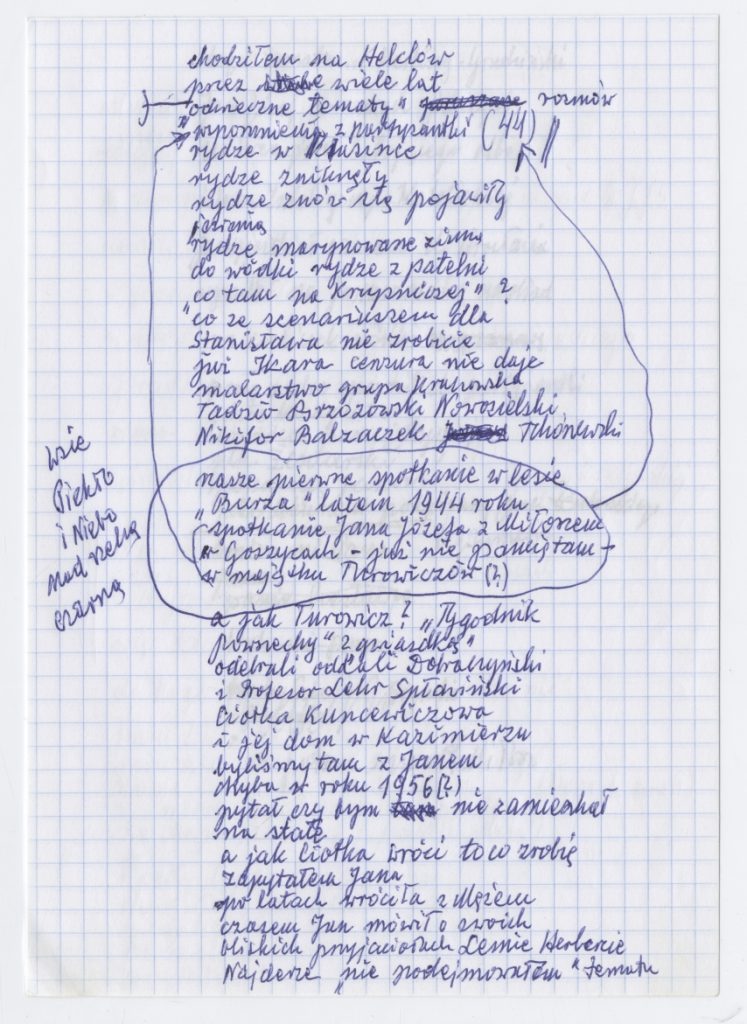 chodziłem na Helclów
przez wiele lat
odwieczne tematy" rozmów
"wypomnienia z partyzantki (44)
rydze w Klusince
rydze zniknęły
rydze znów się pojawiły
jesienią
rydze marynowane zimą
do wódki rydze z patelni
co tam na Krupniczej" ?
"co ze scenariuszem dla
Stanisława nie zrobicie
już Ikara cenzura nie daje
malarstwo grupa Krakowska
Tadzio Brzozowski Nowosielski
Nikifor Balzaczek Tchórzewski
wsie
Piekło
i Niebo
nad rzeką
czarną
nasze pierwsze spotkanie w lesie
„Burza" latem 1944 roku
spotkanie Jana Józefa z Miłoszem
w Goszycach – już nie pamiętam –
w majątku Turowiczów (?)
a jak Turowicz? „Tygodnik
Powszechny" z gwiazdką"
odebrali oddali Dobraczyński
i Profesor Lehr Spławiński
Ciotka Kuncewiczowa
i jej dom w Kazimierzu
byliśmy tam z Janem
chyba w roku 1956(?)
pytał czy bym nie zamieszkał
na stałe
a jak Ciotka wróci to co zrobię
zapytałem Jana
po latach wróciła z Mężem
czasem Jan mówił o swoich
bliskich przyjaciołach Lemie Herbercie
Najderze „nie podejmowałem" tematu